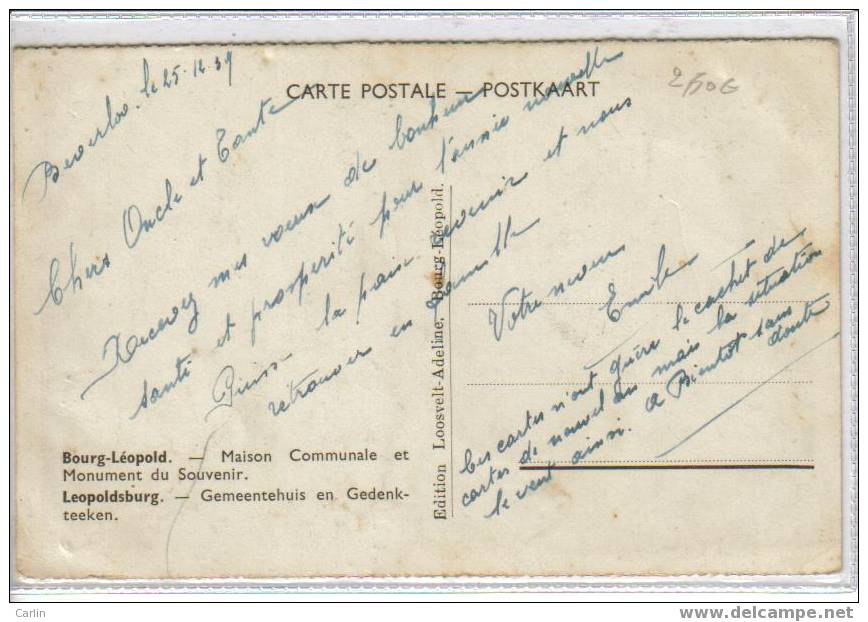 CARTE POSTALE — POSTKAART
2,50 G
Beverloo. le 25-12-39
Chers Oncle et Tante
Recevez mes vœux de bonheur
santé et prosperité pour l'année nouvelle
Puisse la paix revenir et nous
retrouver en famille
Votre neveu
Emile
Ces cartes n'ont guère le cachet de
cartes de nouvel an mais la situation
le veut ainsi. A Bientot sans
doute
Edition Loosvelt-Adeline, Bourg-Léopold.
Bourg-Léopold. — Maison Communale et
Monument du Souvenir.
Leopoldsburg. — Gemeentehuis en Gedenk-
teeken.
Carlin
www.delcampe.net